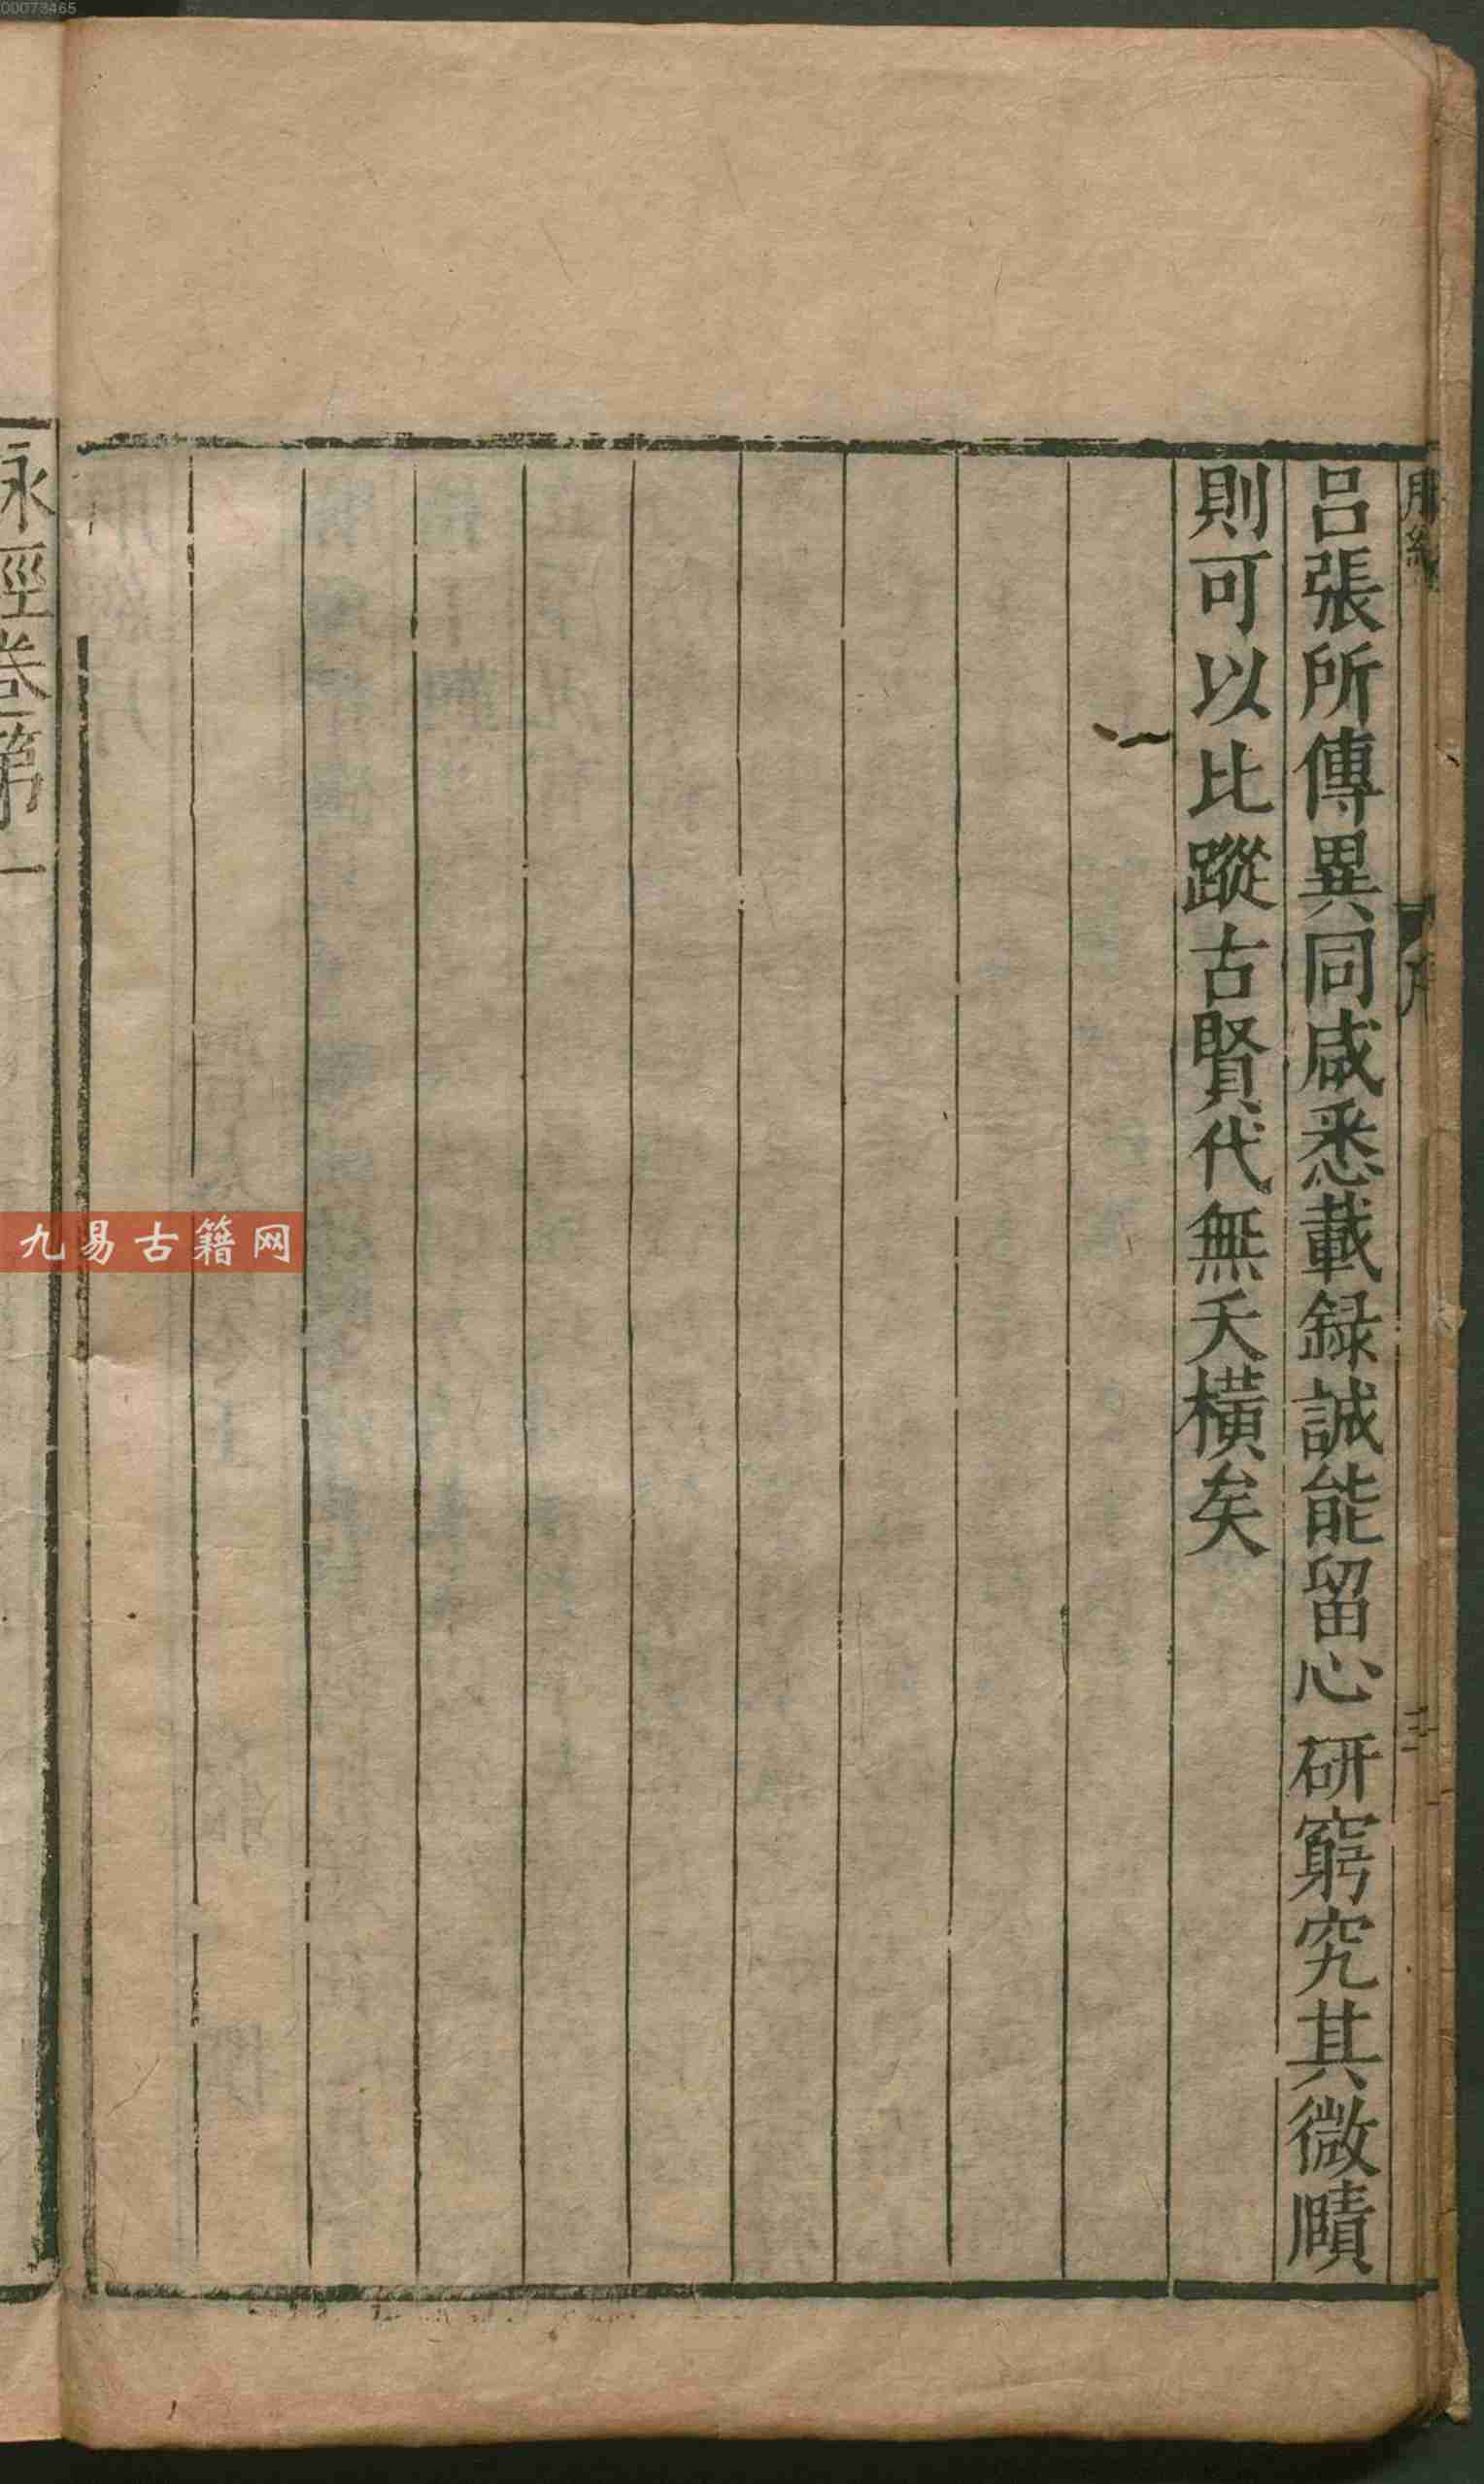 00073465
呂張所傳異同咸悉載録誠能留心研窮究其微賾
則可以比蹤古賢代無夭橫矣
九易古籍网